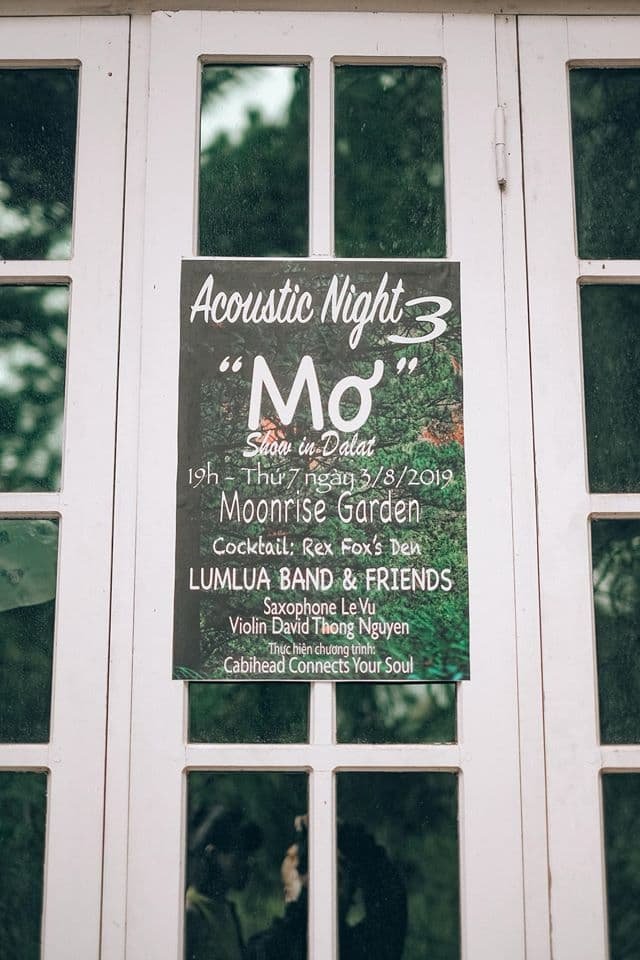 Acoustic Night 3
"Mơ"
Show in Dalat
19h - Thứ 7 ngày 3/8/2019
Moonrise Garden
Cocktail: Rex Fox's Den
LUMLUA BAND & FRIENDS
Saxophone Le Vu
Violin David Thong Nguyen
Thực hiện chương trình:
Cabihead Connects Your Soul